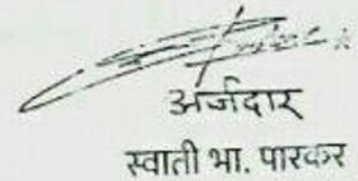 अर्जदार
स्वाती भा. पारकर